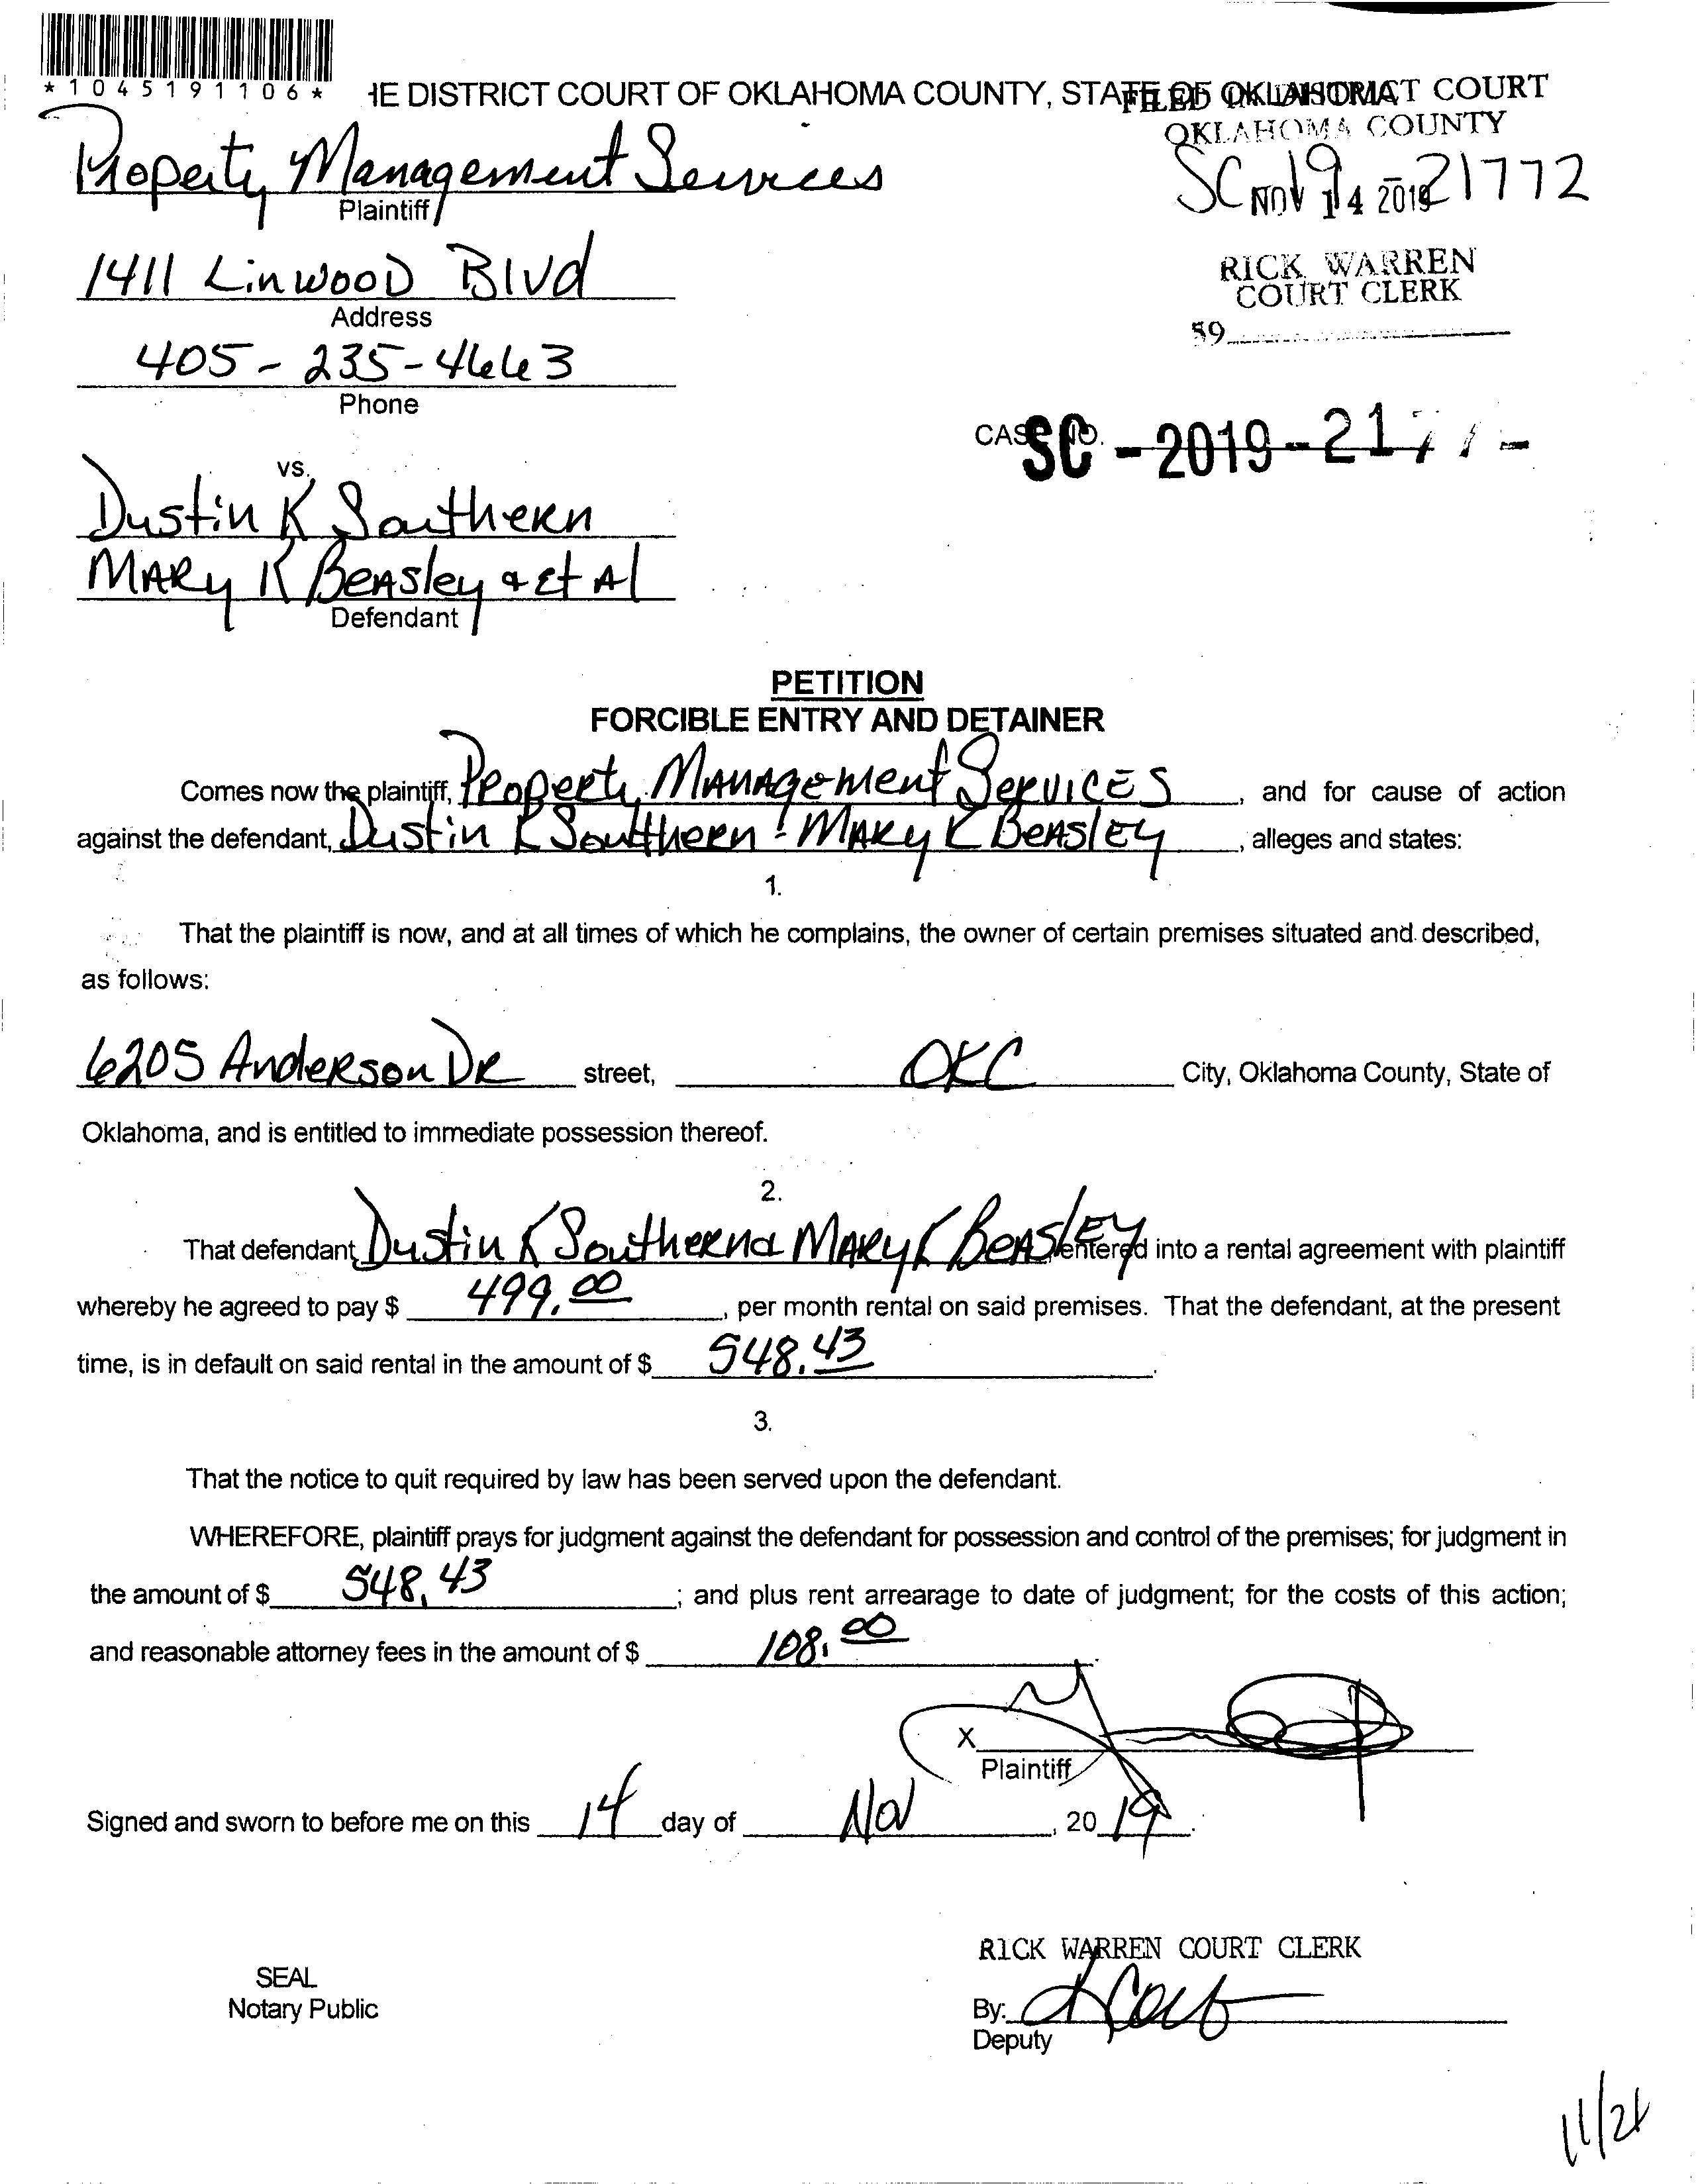 *1045191106*
HE DISTRICT COURT OF OKLAHOMA COUNTY, STATE OF OKLAHOMA
FILED IN DISTRICT COURT
OKLAHOMA COUNTY
Property Management Services
Plaintiff
SC 19-21772
NOV 14 2019
1411 LinwooD Blvd
Address
RICK WARREN
COURT CLERK
59
405-235-4663
Phone
CASE NO.
SC - 2019 - 217
vs.
Dustin K Southern
MARy K BeAsley & Et Al
Defendant
PETITION
FORCIBLE ENTRY AND DETAINER
Comes now the plaintiff, Property MANAgement SERVICES, and for cause of action
against the defendant, Dustin K Southern & MARy K BeAslEy, alleges and states:
1.
That the plaintiff is now, and at all times of which he complains, the owner of certain premises situated and described,
as follows:
6205 Anderson DR street, OKC City, Oklahoma County, State of
Oklahoma, and is entitled to immediate possession thereof.
2.
That defendant, Dustin K Southern & MARy K BeAslEy entered into a rental agreement with plaintiff
whereby he agreed to pay $ 499.00, per month rental on said premises. That the defendant, at the present
time, is in default on said rental in the amount of $ 548.43.
3.
That the notice to quit required by law has been served upon the defendant.
WHEREFORE, plaintiff prays for judgment against the defendant for possession and control of the premises; for judgment in
the amount of $ 548.43; and plus rent arrearage to date of judgment; for the costs of this action;
and reasonable attorney fees in the amount of $ 108.00.
X
Plaintiff
Signed and sworn to before me on this 14 day of Nov, 2019.
RICK WARREN COURT CLERK
SEAL
Notary Public
By:
Deputy
11/21